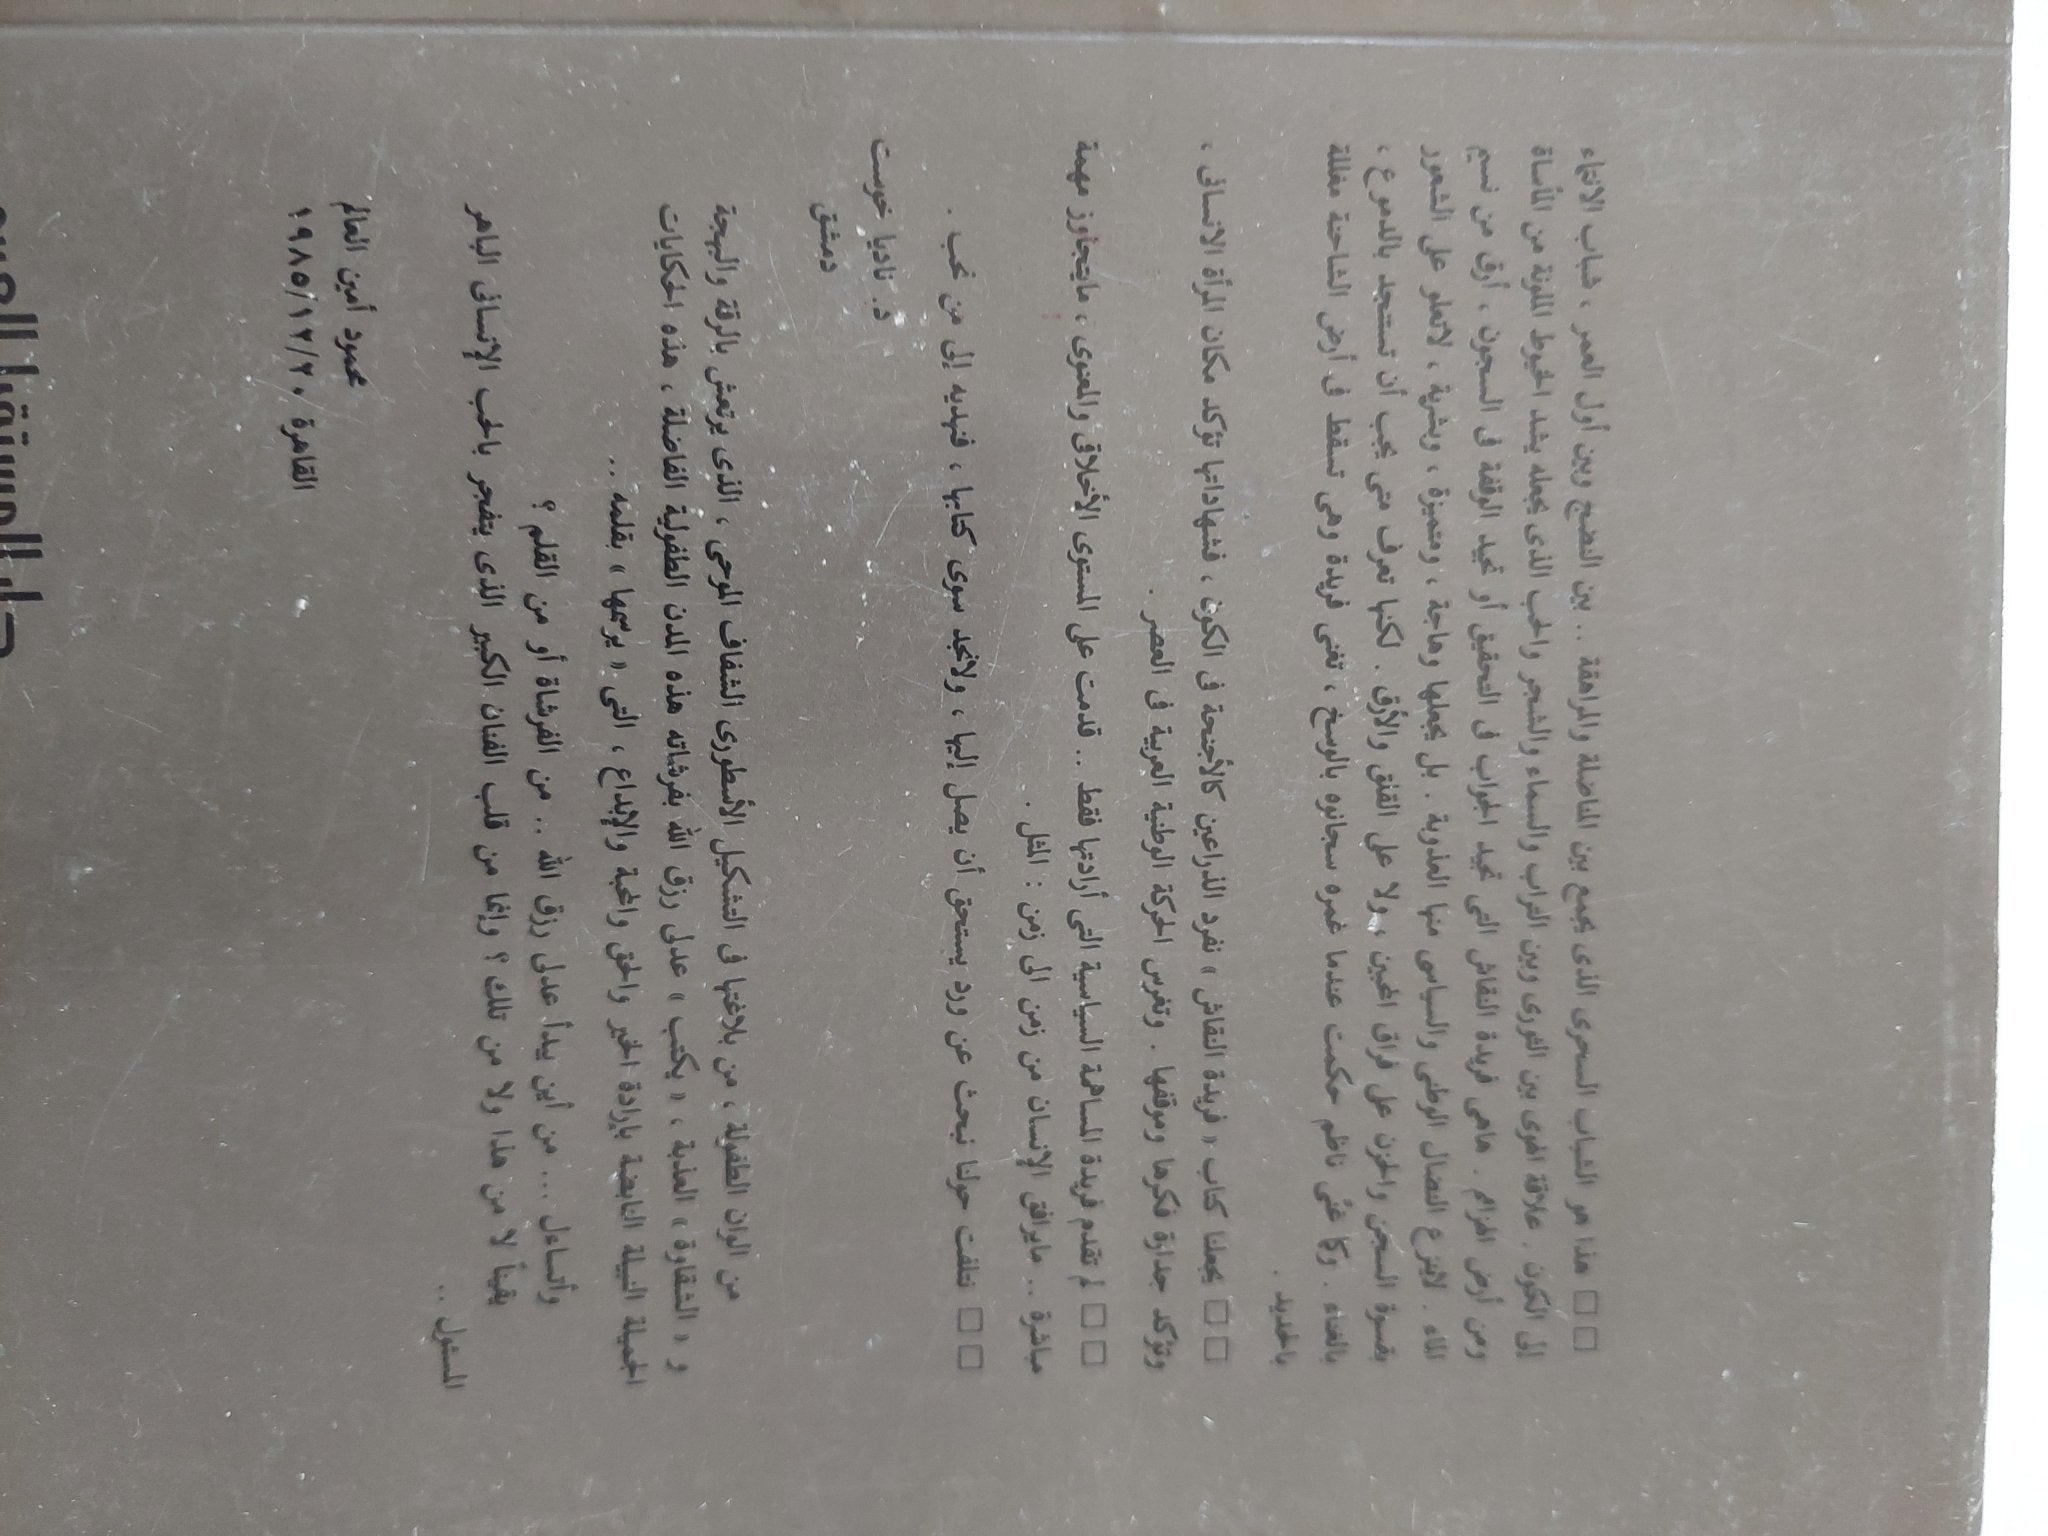 □ □ هذا هو الشباب السحرى الذى يجمع بين المناضلة والمراهقة .. بين النضج وبين أول العمر ، شباب الانتماء
إلى الكون . علاقة الهوى بين الثورى وبين التراب والسماء والشجر والحب الذى يجعله يشد الخيوط الملونة من المأساة
ومن أرض الهزائم . هاهى فريدة النقاش التى تجيد الجواب فى التحقيق أو تجيد الوقفة فى السجون ، أرق من نسيم
الماء . لاينزع النضال الوطنى والسياسى منها العذوبة . بل يجعلها وهاجة ، ومتميزة ، وبشرية ، لاتعلو على الشعور
بقسوة السجن والحزن على فراق المحبين ، ولا على القلق والأرق . لكنها تعرف متى يجب أن تستنجد بالدموع ،
بالغناء . وكما غنى ناظم حكمت عندما غمره سجانوه بالوسخ ، تغنى فريدة وهى تسقط فى أرض الشاحنة مغللة
بالحديد .
□ □ يجعلنا كتاب « فريدة النقاش » نفرد الذراعين كالأجنحة فى الكون ، فشهاداتها تؤكد مكان المرأة الانسانى ،
وتؤكد جدارة فكرها وموقفها . وتغرس الحركة الوطنية العربية فى العصر .
□ □ لم تقدم فريدة المساهمة السياسية التى أرادتها فقط .. قدمت على المستوى الأخلاقى والمعنوى ، مايتجاوز مهمة
مباشرة .. مايرافق الإنسان من زمن الى زمن : المثل .
□ □ نتلفت حولنا نبحث عن ورد يستحق أن يصل إليها ، ولانجد سوى كتابها ، فنهديه إلى من نحب .
د. ناديا خوست
دمشق
من الوان الطفولة ، من بلاغتها فى التشكيل الأسطورى الشفاف الموحى ، الذى يرتعش بالرقة والبهجة
و « الشقاوة » العذبة ، « يكتب » عدلى رزق الله بفرشاته هذه المدن الطفولية الفاضلة ، هذه الحكايات
الجميلة النبيلة النابضة بإرادة الخير والحق والمحبة والإبداع ، التى « يرسمها » بقلمه ..
وأتساءل ... من أين يبدأ عدلى رزق الله .. من الفرشاة أو من القلم ؟
يقيناً لا من هذا ولا من تلك ؟ وإنما من قلب الفنان الكبير الذى يتفجر بالحب الإنسانى الباهر
المسئول ..
محمود أمين العالم
القاهرة ١٩٨٥/١٢/٢٠
دار المستقبل